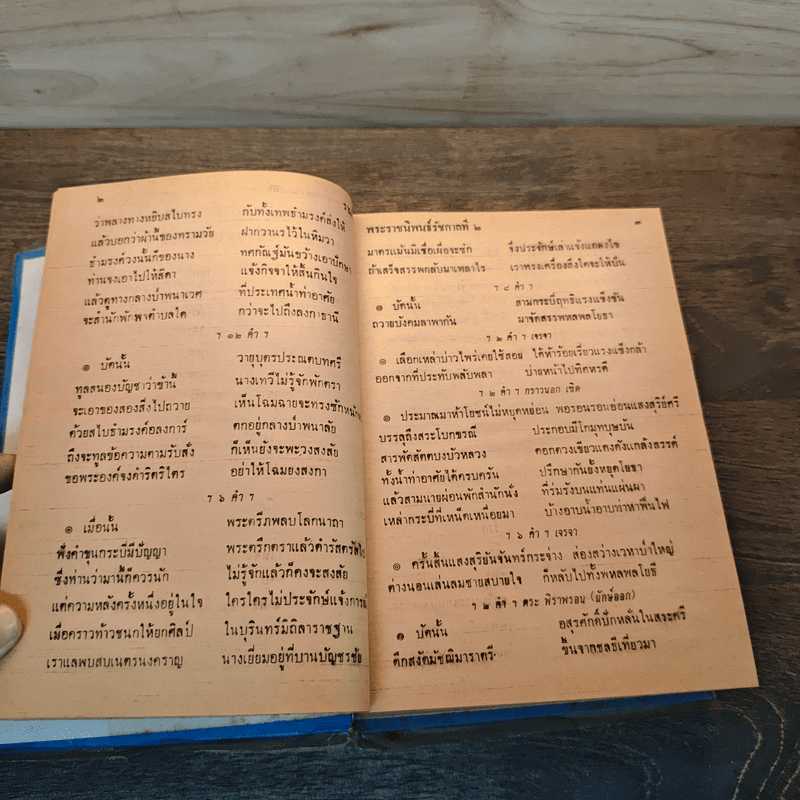 ๒
ว่าพลางทางหยิบสไบทรง กับทั้งเทพธำมรงค์ส่งให้
แล้วบอกว่าผ้านี้ของทรามวัย ฝากวานรไว้ในหิมวา
ธำมรงค์วงนั้นก็ของนาง ทศกัณฐ์มันขว้างเอาปักษา
ท่านจงเอาไปให้สีดา แจ้งกิจจาให้สิ้นกินใจ
แล้วดูทางกลางป่าพนาเวศ ที่ประเทศน้ำท่าอาศัย
จะสำนักพักพลตำบลใด กว่าจะไปถึงลงกาธานี
ฯ ๑๒ คำ ฯ
๏ บัดนั้น วายุบุตรประณตบทศรี
ทูลสนองบัญชาว่าข้านี้ นางเทวีไม่รู้จักพักตรา
จะเอาของสองสิ่งไปถวาย เห็นโฉมฉายจะทรงซักหนักหนา
ด้วยสไบธำมรงค์อลงการ์ ตกอยู่กลางป่าพนาสัย
ถึงจะทูลข้อความตามรับสั่ง ก็เห็นยังจะพะวงสงสัย
ขอพระองค์จงดำริตริไตร อย่าให้โฉมยงสงกา
ฯ ๖ คำ ฯ
๏ เมื่อนั้น พระตรีภพลบโลกนาถา
ฟังคำขุนกระบี่มีปัญญา พระตรึกตราแล้วดำรัสตรัสไป
ซึ่งท่านว่ามานี้ก็ควรนัก ไม่รู้จักแล้วก็คงจะสงสัย
แต่ความหลังครั้งหนึ่งอยู่ในใจ ใครใครไม่ประจักษ์แจ้งการณ์
เมื่อคราวท้าวชนกให้ยกศิลป์ ในบุรินทร์มิถิลาราชฐาน
เราแลพบสบเนตรนงคราญ นางเยี่ยมอยู่ที่บานบัญชรชัย
พระราชนิพนธ์รัชกาลที่ ๒ ๓
มาตรแม้นมิเชื่อเผื่อจะซัก จึงประจักษ์เล่าแจ้งแถลงไข
ถ้าเสร็จสรรพกลับมาเพลาไร เราทรงเครื่องสิ่งใดจะให้ปัน
ฯ ๘ คำ ฯ
๏ บัดนั้น สามกระบี่ฤทธิแรงแข็งขัน
ถวายบังคมลาพากัน มาจัดสรรพหลพลโยธา
ฯ ๒ คำ ฯ เจรจา
๏ เลือกเหล่าบ่าวไพร่เคยใช้สอย ได้ห้าร้อยเรี่ยวแรงแข็งกล้า
ออกจากที่ประทับพลับพลา บ่ายหน้าไปทิศหรดี
ฯ ๒ คำ ฯ กราวนอก เชิด
๏ ประมาณมาห้าโยชน์ไม่หยุดหย่อน พอรอนรอนอ่อนแสงสุริย์ศรี
บรรลุถึงสระโบกขรณี ประกอบมีโกมุทบุษบัน
สารพัดสัตตบงบัวหลวง ดอกดวงเขียวแดงดังแกล้งสรรค์
ทั้งน้ำท่าอาศัยได้ครบครัน ปรึกษากันยั้งหยุดโยธา
แล้วสามนายผ่อนพักสำนักนั่ง ที่ร่มรังบนแท่นแผ่นผา
เหล่ากระบี่ที่เหน็ดเหนื่อยมา บ้างอาบน้ำอาบท่าหาฟืนไฟ
ฯ ๖ คำ ฯ เจรจา
๏ ครั้นสิ้นแสงสุริยันจันทร์กระจ่าง ส่องสว่างเวหาป่าใหญ่
ต่างนอนเล่นลมชายสบายใจ ก็หลับไปทั้งพหลพลโยธี
ฯ ๒ คำ ฯ ตระ พิราพรอน (ยักษ์ออก)
๏ บัดนั้น อสุรศักดิ์ปักหลั่นในสระศรี
ดึกสงัดมัชฌิมาราตรี ขึ้นจากชลธีเที่ยวมา